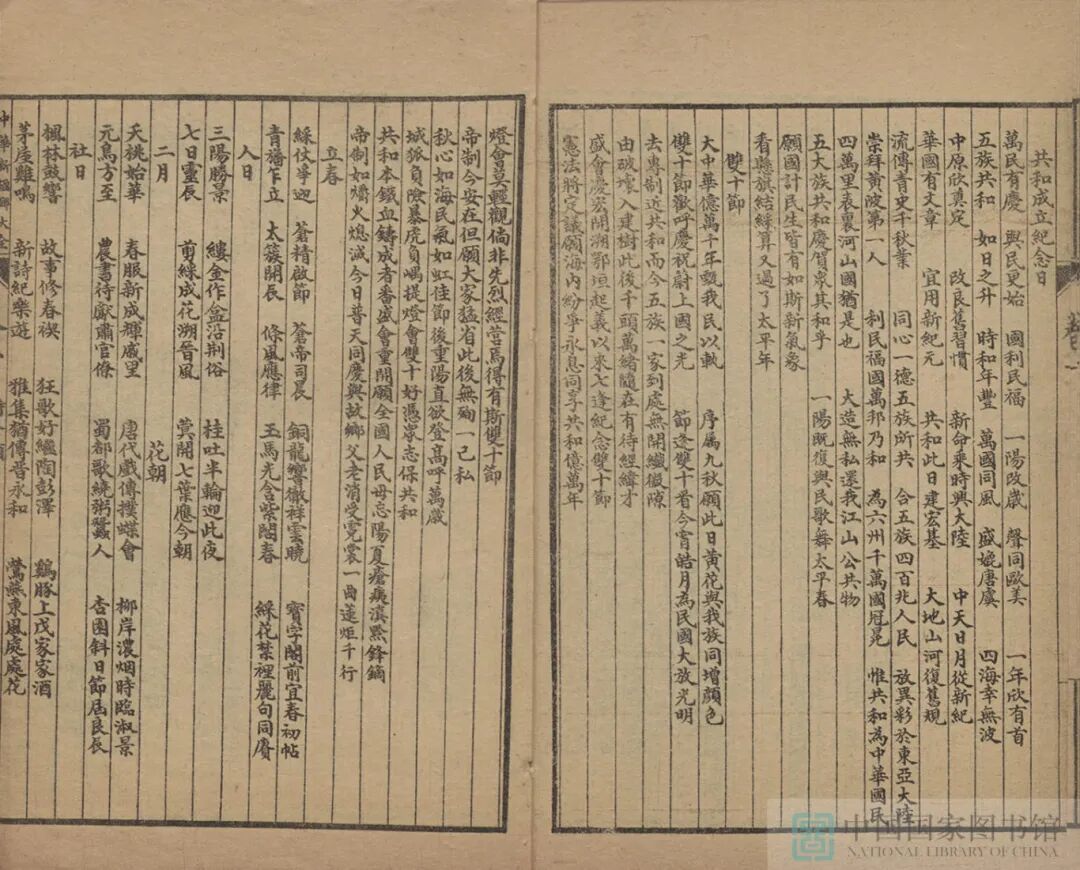 共和成立紀念日
萬民有慶 與民更始 國利民福 一陽改歲 聲同歐美 一年欣有首
五族共和 如日之升 時和年豐 萬國同風 盛媲唐虞 四海幸無波
中原欣奠定 改良舊習慣 新命乘時興大陸 中天日月從新紀
華國有文章 宜用新紀元 共和此日建宏基 大地山河復舊規
流傳青史千秋業 同心一德五族所共 合五族四百兆人民 放異彩於東亞大陸
崇拜黃陂第一人 利民福國萬邦乃和 為六州千萬國冠冕 惟共和為中華國民
四萬里表裏河山國猶是也 大造無私還我江山公共物
五大族共和慶賀眾其和乎 一陽既復與民歌舞太平春
願國計民生皆有如斯新氣象
看懸旗結綵算又過了太平年
雙十節
大中華億萬千年甄我民以軌 序屬九秋願此日黃花與我族同增顏色
雙十節歡呼慶祝尉上國之光 節逢雙十看今宵皓月為民國大放光明
去專制近共和而今五族一家到處無開纖微隙
由破壞入建樹此後千頭萬緒隨在有待經緯才
盛會慶宏開溯鄂垣起義以來七逢紀念雙十節
憲法將定議願海內紛爭永息同享共和億萬年
燈會莫輕觀倘非先烈經營焉得有斯雙十節
帝制今安在但願大家猛省此後無殉一己私
秋心如海民氣如虹佳節後重陽直欲登高呼萬歲
城狐負險暴虎負嵎提燈會雙十好憑眾志保共和
共和本鐵血鑄成者番盛會重開願全國人民毋忘陽夏瘡痍滇黔鋒鏑
帝制如爝火熄滅今日普天同慶與故鄉父老消受霓裳一曲蓮炬千行
立春
綵仗爭迎 蒼精啟節 蒼帝司晨 銅龍響徹祥雲曉 寶字閣前宜春初帖
青旛乍立 太簇開辰 條風應律 玉馬光含紫閣春 綵花禁裡麗句同賡
人日
三陽勝景 縷金作盒沿荆俗 桂吐半輪迎此夜
七日靈辰 剪綵成花溯晉風 蓂開七葉應今朝
二月 花朝
夭桃始華 春服新成輝戚里 唐代戲傳撲蝶會 柳岸濃烟時臨淑景
元鳥方至 農書待獻肅官條 蜀都歌繞粥蠶人 杏園斜日節屆良辰
社日
楓林鼓響 故事修春禊 狂歌好繼陶彭澤 鷄豚上戊家家酒
茅屋雞鳴 新詩紀樂遊 雅集猶傳晉永和 鶯燕東風處處花
中國国家图书馆
NATIONAL LIBRARY OF CHINA